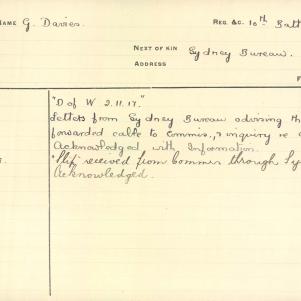 NAME G. Davies. REG. &C. 10th Batt
NEXT OF KIN Sydney Bureau.
ADDRESS
F
"D of W 2.11.17."
Letters from Sydney Bureau advising th
forwarded cable to Commis., & inquiry re
Acknowledged with Information.
"Slip" received from Commis through Sy
Acknowledged.